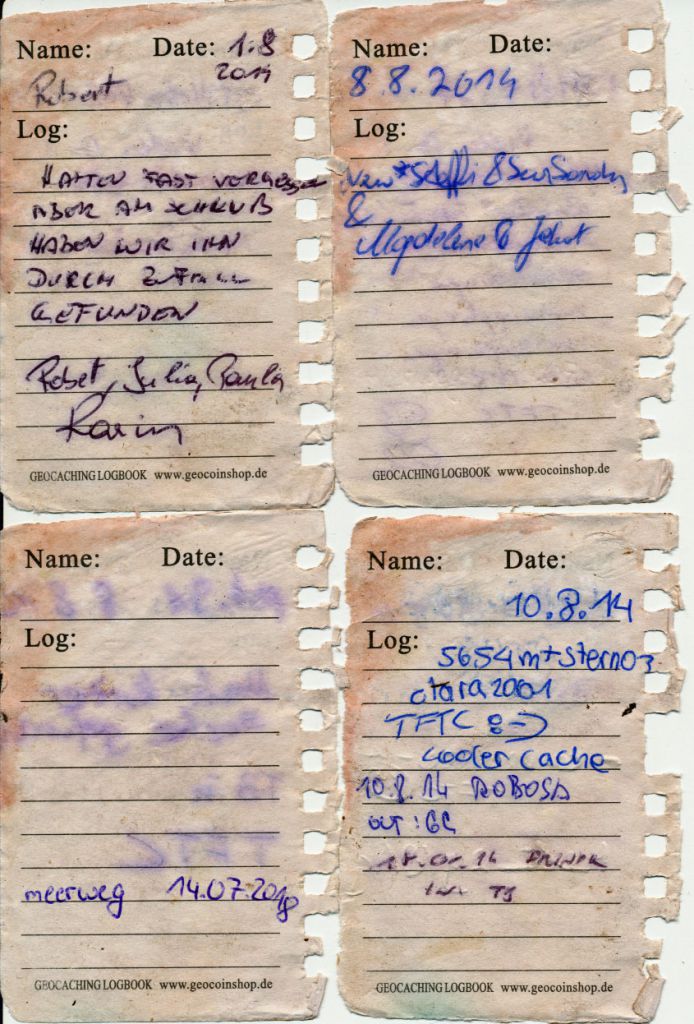 Name: Date: 1.8
2014
Robert
Log:
HATTEN FAST VERGESSEN
ABER AM SCHLUß
HABEN WIR IHN
DURCH ZUFALL
GEFUNDEN
Robert, Julia, Paula
Karin
GEOCACHING LOGBOOK www.geocoinshop.de
Name: Date:
8.8.2014
Log:
&
GEOCACHING LOGBOOK www.geocoinshop.de
Name: Date:
Log:
meerweg 14.07.2018
GEOCACHING LOGBOOK www.geocoinshop.de
Name: Date:
10.8.14
Log:
5654m+stern03
ctara2001
TFTC
cooler cache
10.8.14 ROBOSA
OUT: GC
GEOCACHING LOGBOOK www.geocoinshop.de